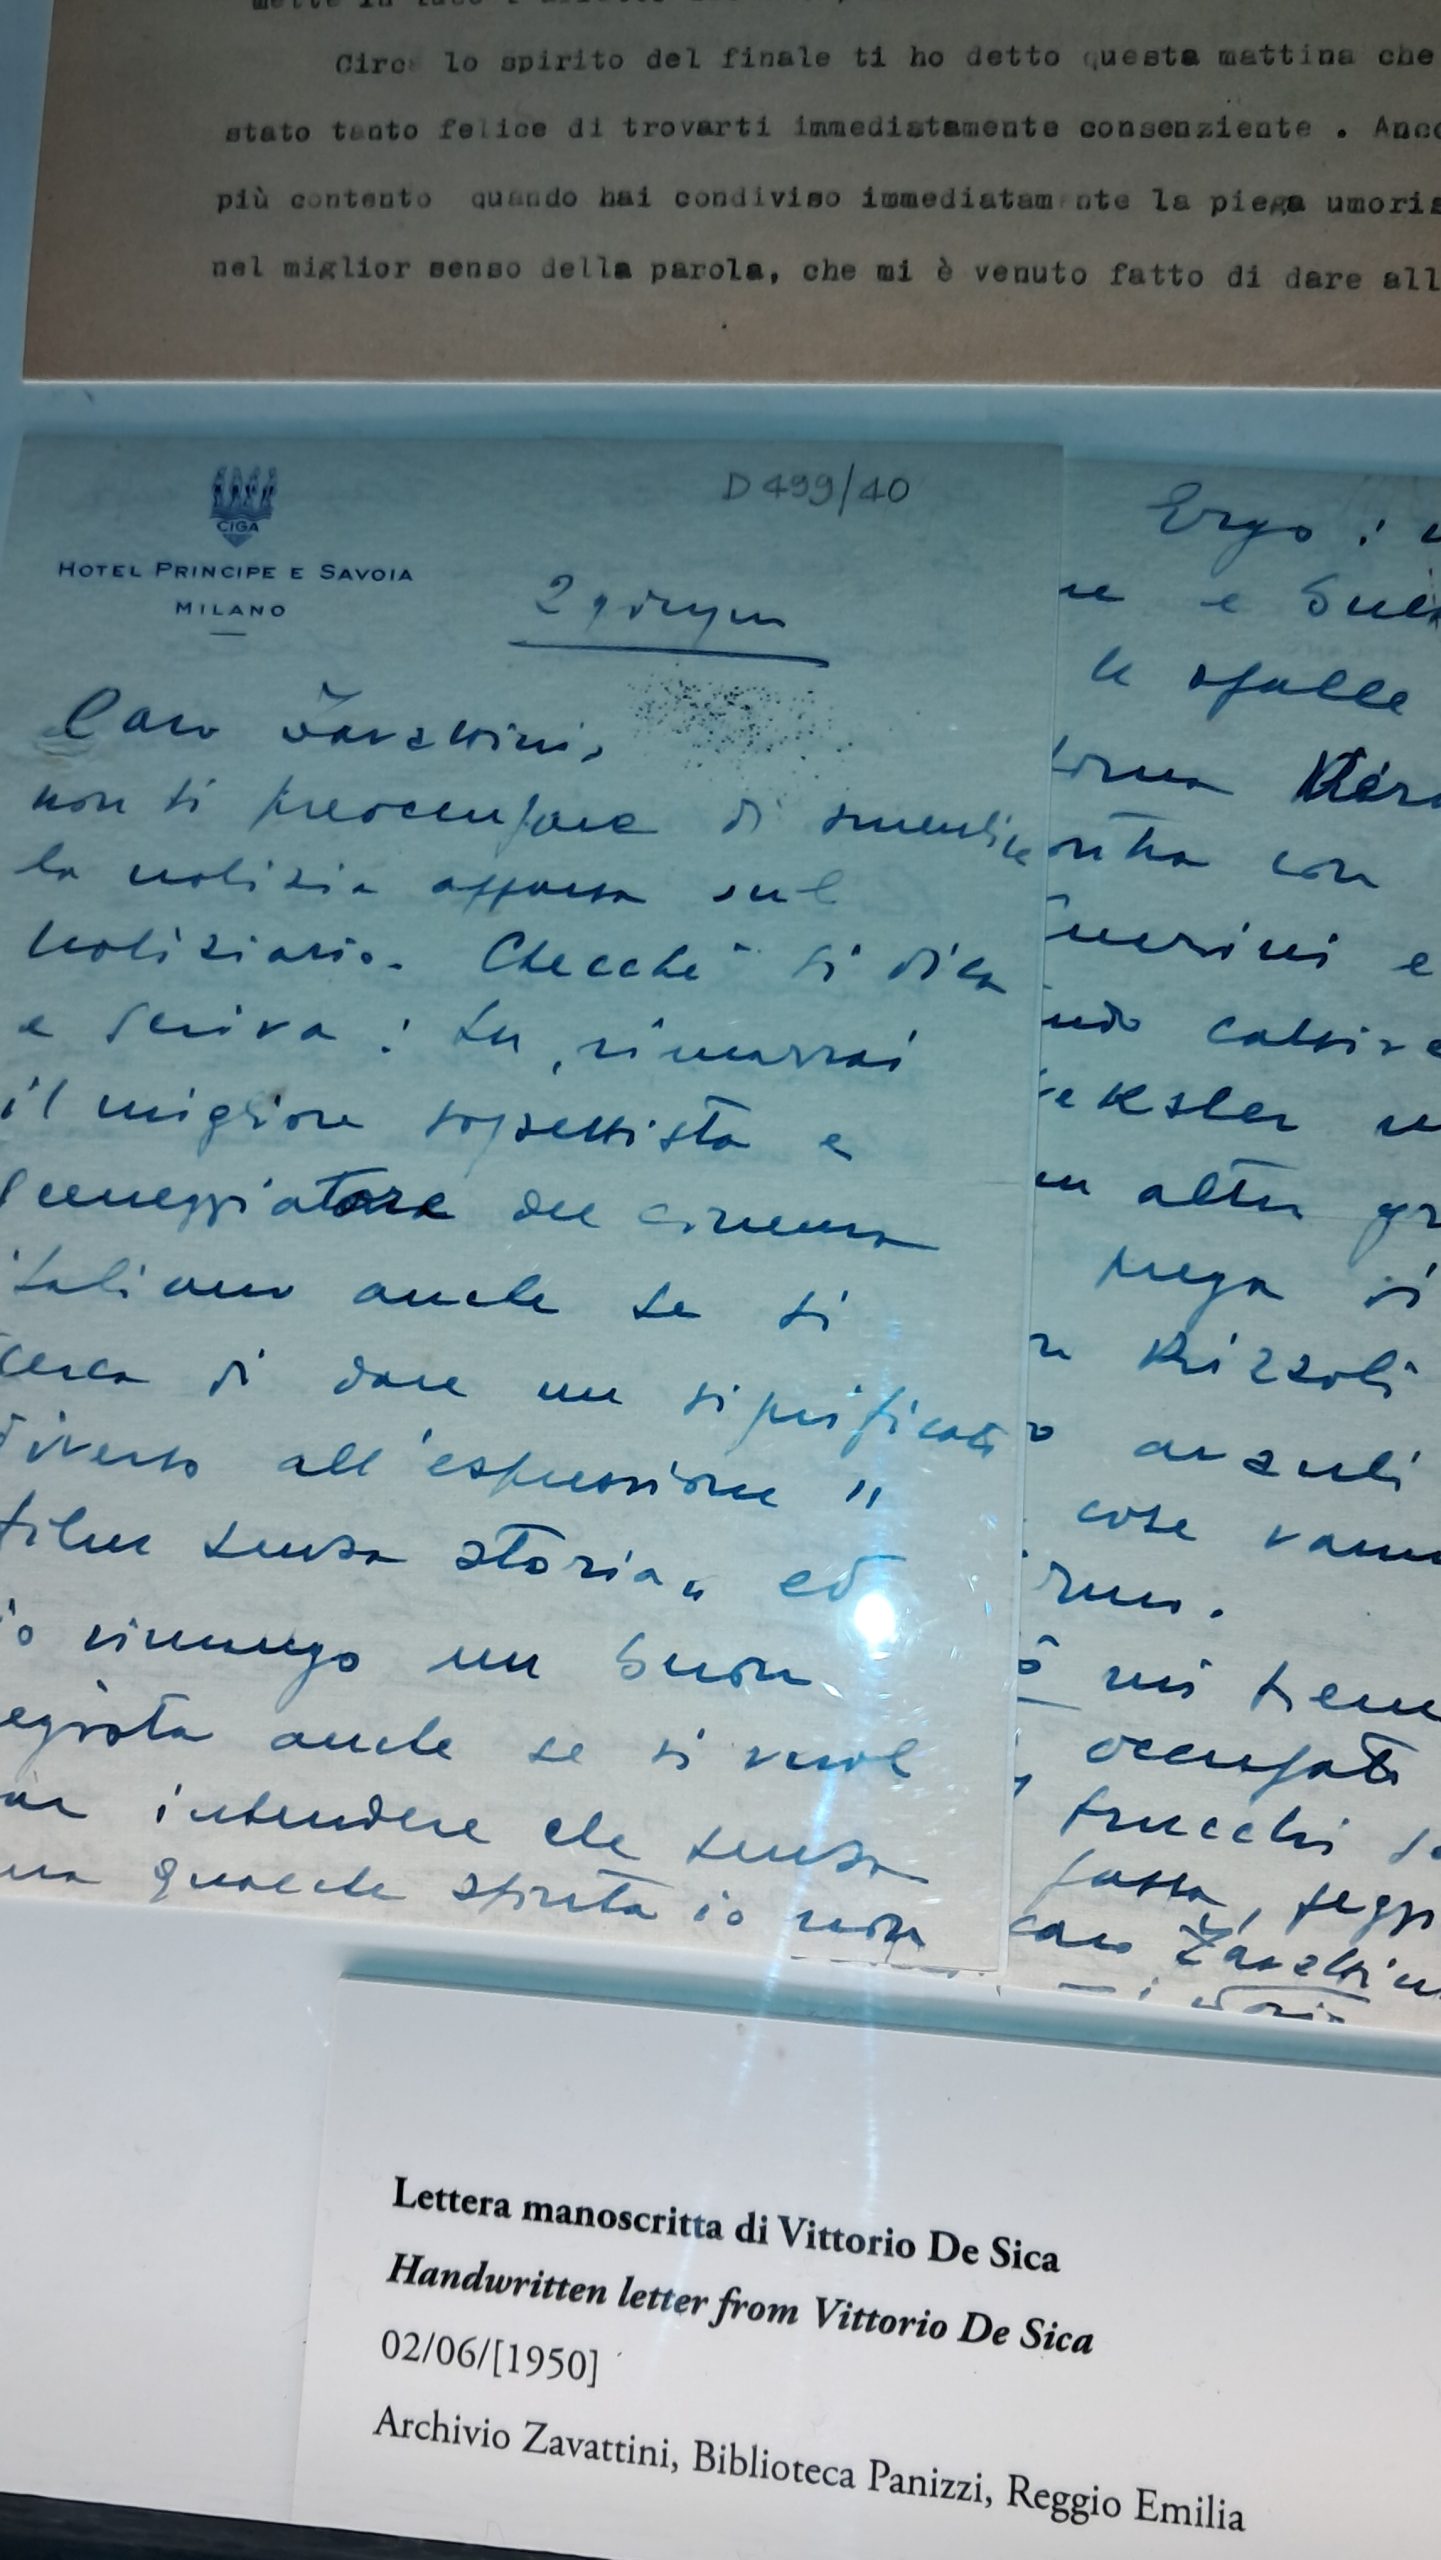 Circa lo spirito del finale ti ho detto questa mattina che
stato tanto felice di trovarti immediatamente consenziente . Anco
più contento quando hai condiviso immediatamente la piega umoris
nel miglior senso della parola, che mi è venuto fatto di dare all
CIGA
HOTEL PRINCIPE E SAVOIA
MILANO
D 499/40
2 giugno
Caro Zavattini,
non ti preoccupare di smentire
la notizia apparsa sul
notiziario. Checché si dica
e scriva: tu, rimarrai
il migliore soggettista e
sceneggiatore del cinema
italiano anche se si
cerca di dare un significato
diverso all'espressione "
film senza storia" ed
io rimango un buon
regista anche se si vuol
intendere che senza
qualche spinta io non
Ergo:
le spalle
con
Guerini e
un altro
prega di
Rizzoli
anzuli
cose vanno
mi tiene
occupato
trucchi
caro Zavattini
Lettera manoscritta di Vittorio De Sica
Handwritten letter from Vittorio De Sica
02/06/[1950]
Archivio Zavattini, Biblioteca Panizzi, Reggio Emilia